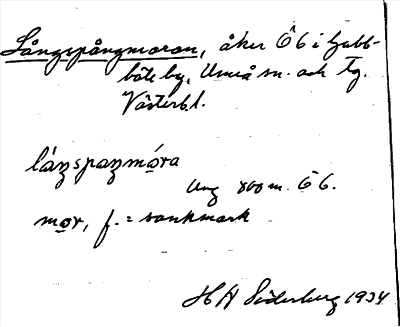 Långspångmoran, åker ÖB i Gubb-
böle by, Umeå sn. och tg.
Västerb. l.
låŋspaŋmo̱ra
Ung 800 m. ÖB.
mo̱r, f. = sankmark
H A Söderberg 1934